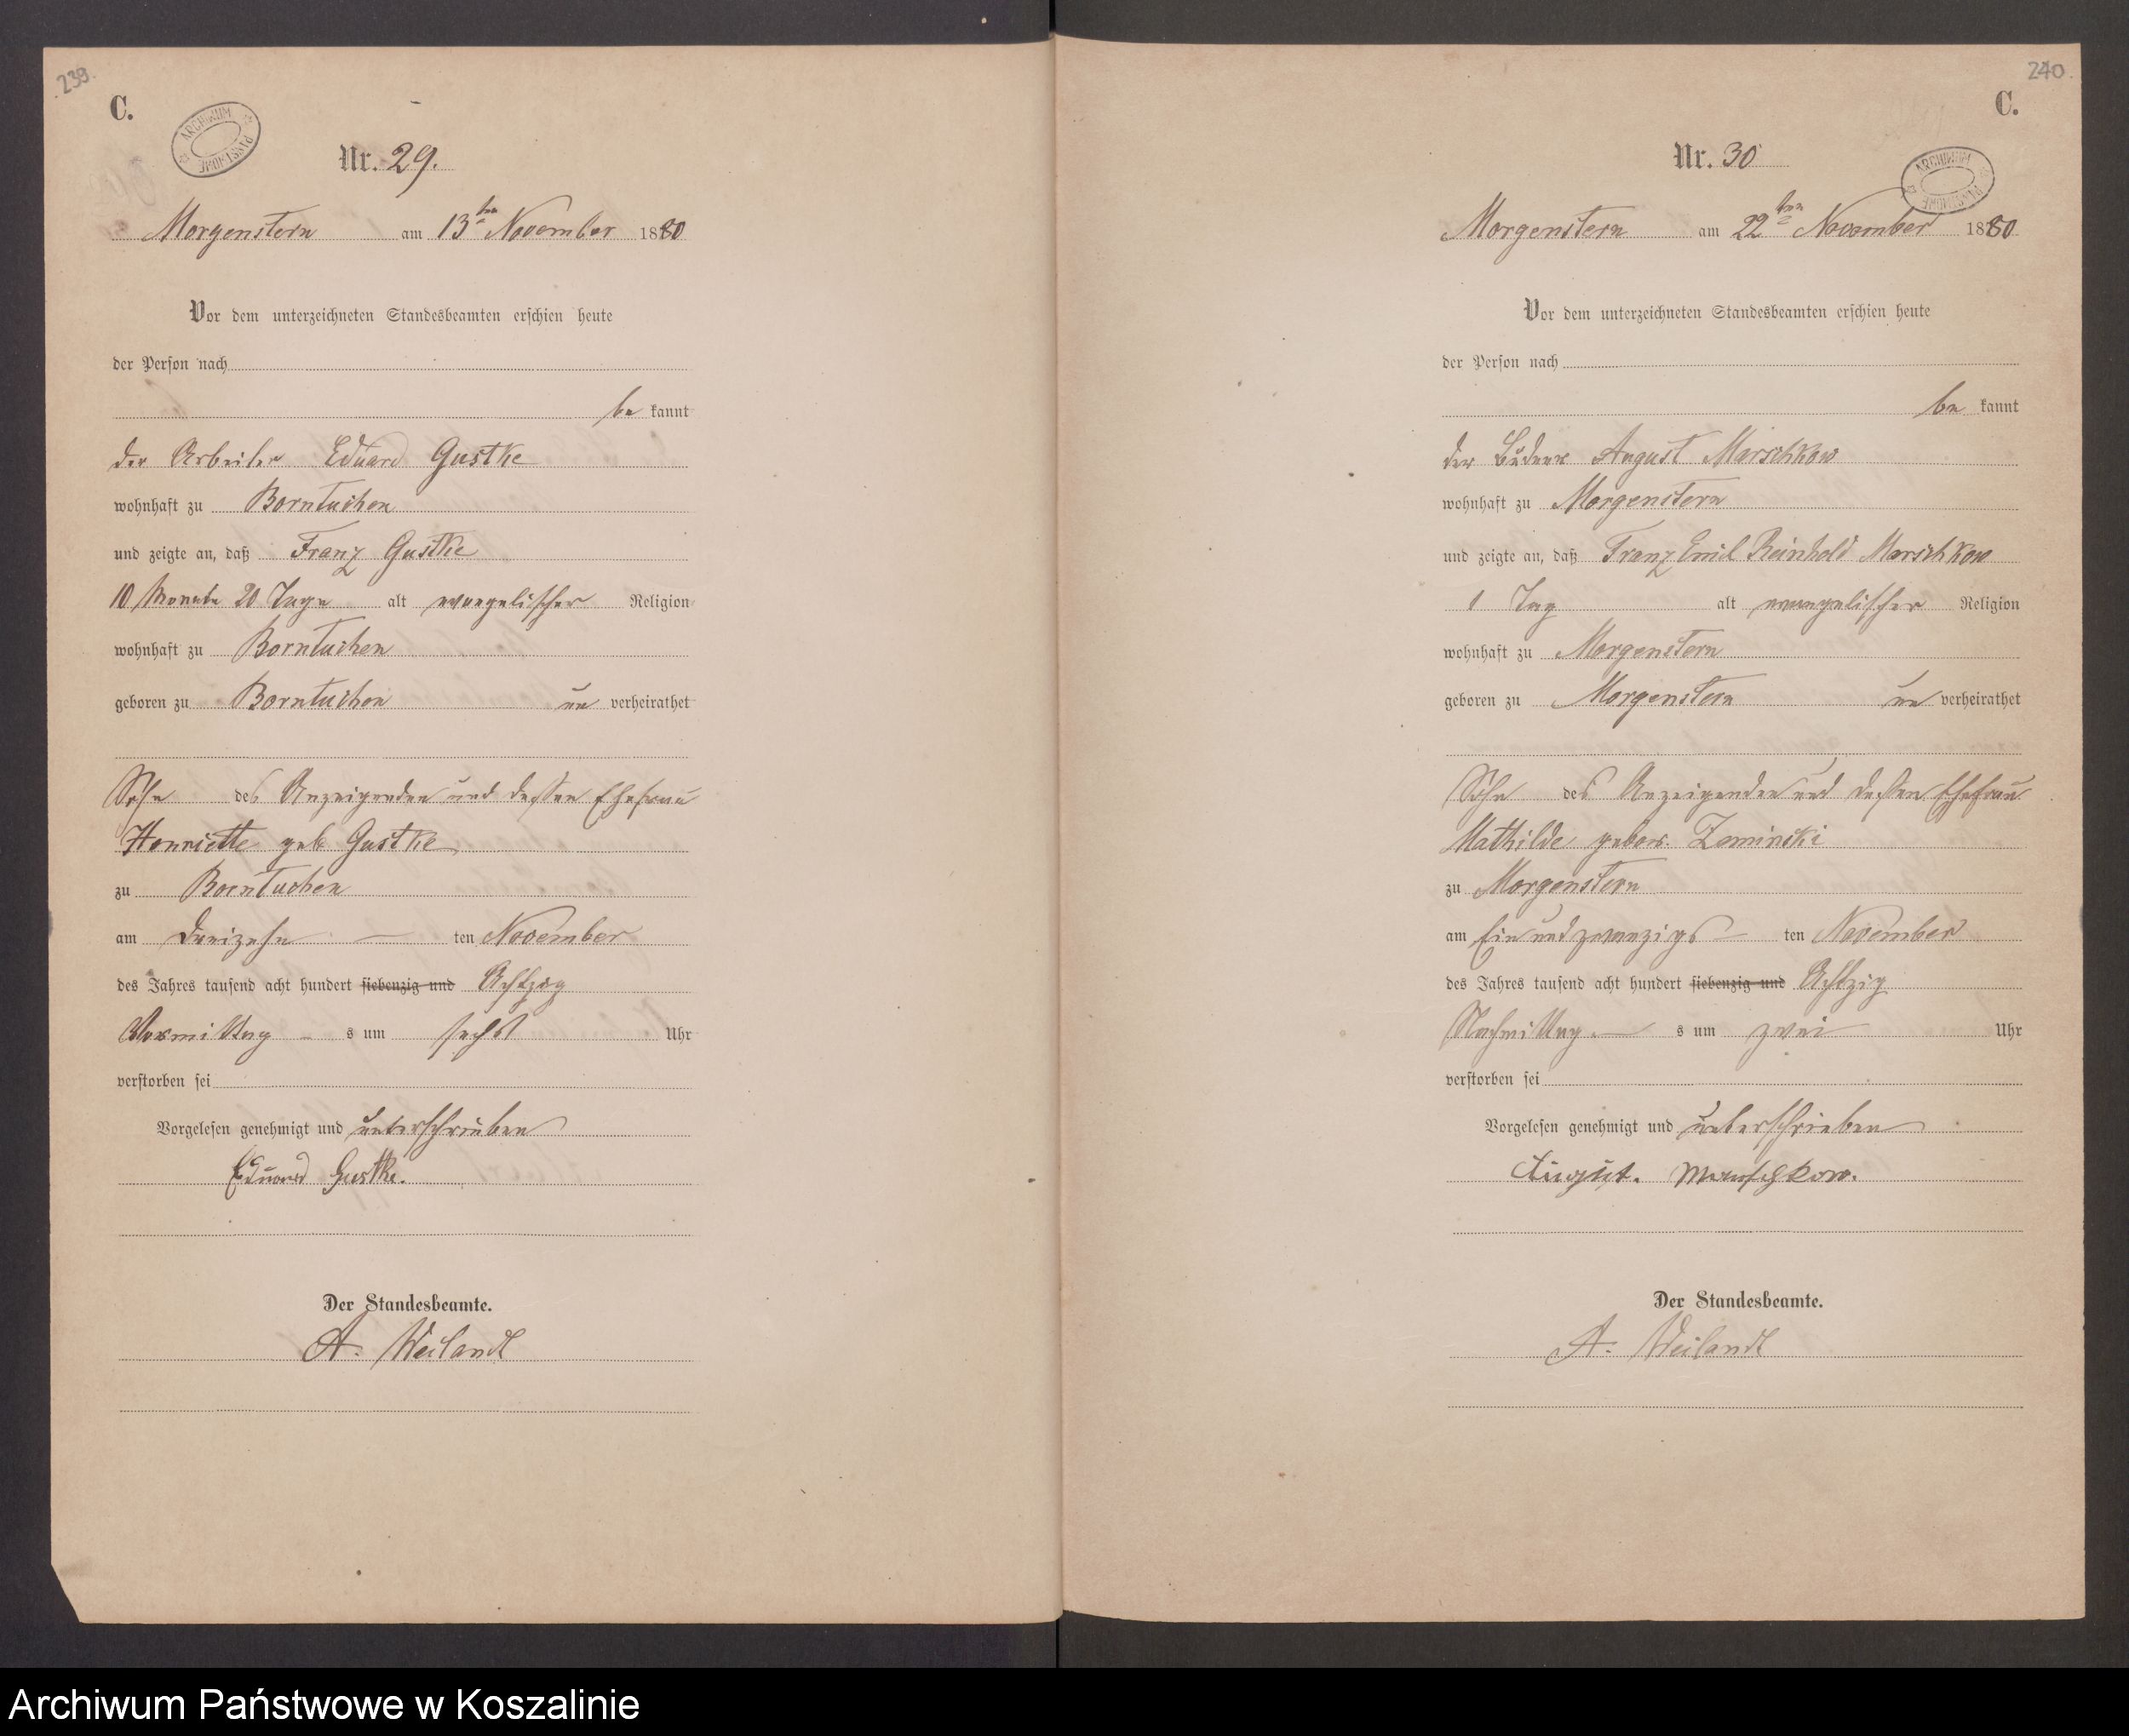 239.
C.
ARCHIWUM PAŃSTWOWE
Nr. 29.
Morgenstern am 13ten November 1880
Vor dem unterzeichneten Standesbeamten erschien heute
der Person nach
be kannt
der Arbeiter Eduard Gustke
wohnhaft zu Borntuchen
und zeigte an, daß Franz Gustke
10 Monate 20 Tage alt evangelischer Religion
wohnhaft zu Borntuchen
geboren zu Borntuchen un verheirathet
Sohn des Anzeigenden und dessen Ehefrau
Henriette geb Gustke
zu Borntuchen
am dreizehn ten November
des Jahres tausend acht hundert siebenzig und Achtzig
Vormittag s um sechs Uhr
verstorben sei
Vorgelesen genehmigt und unterschrieben
Eduard Gustke.
Der Standesbeamte.
A. Weilandt
240.
C.
ARCHIWUM PAŃSTWOWE
Nr. 30
Morgenstern am 22ten November 1880
Vor dem unterzeichneten Standesbeamten erschien heute
der Person nach
be kannt
der Büdner August Marschkow
wohnhaft zu Morgenstern
und zeigte an, daß Franz Emil Reinhold Marschkow
1 Tag alt evangelischer Religion
wohnhaft zu Morgenstern
geboren zu Morgenstern un verheirathet
Sohn des Anzeigenden und dessen Ehefrau
Mathilde gebor. Zeminski
zu Morgenstern
am Ein und zwanzigs ten November
des Jahres tausend acht hundert siebenzig und Achtzig
Nachmittag s um zwei Uhr
verstorben sei
Vorgelesen genehmigt und unterschrieben
August. Marschkow.
Der Standesbeamte.
A. Weilandt
Archiwum Państwowe w Koszalinie